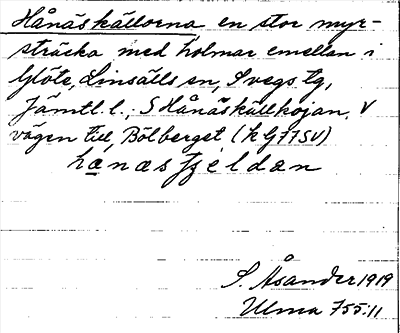 Hånäskällorna en stor myr-
sträcka med holmar emellan i
Glöte, Linsälls sn, Svegs tg,
Jämtl. l.; S Hånäskällkojan, V
vägen till Bölberget (k G77SV)
hanasʃeldan
S. Åsander 1919
Ulma 755:11